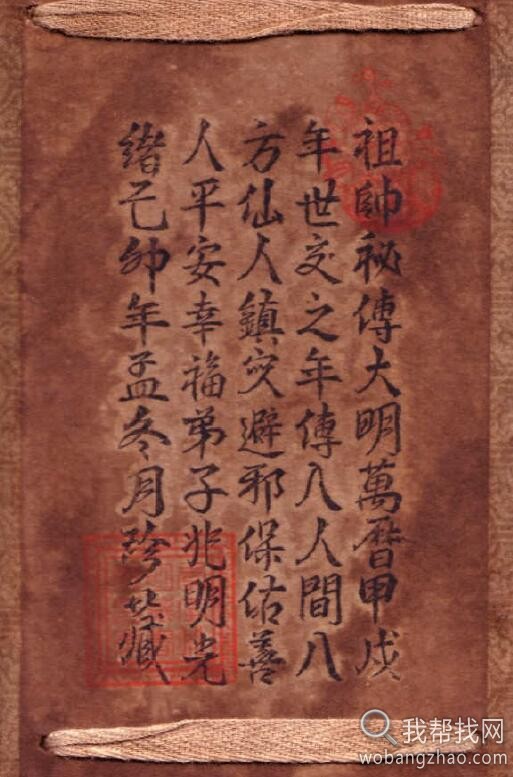 祖師秘傳大明萬曆甲戍
年世交之年傳入人間八
方仙人鎮災避邪保佑善
人平安幸福弟子兆明光
緒己卯年孟冬月珍藏
我帮找网
wobangzhao.com